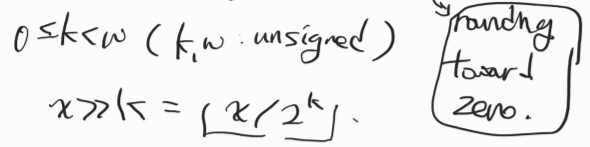 0 ≤ k < w ( k, w : unsigned )
x >> k = ⌊ x / 2^k ⌋ .
rounding
toward
zero.